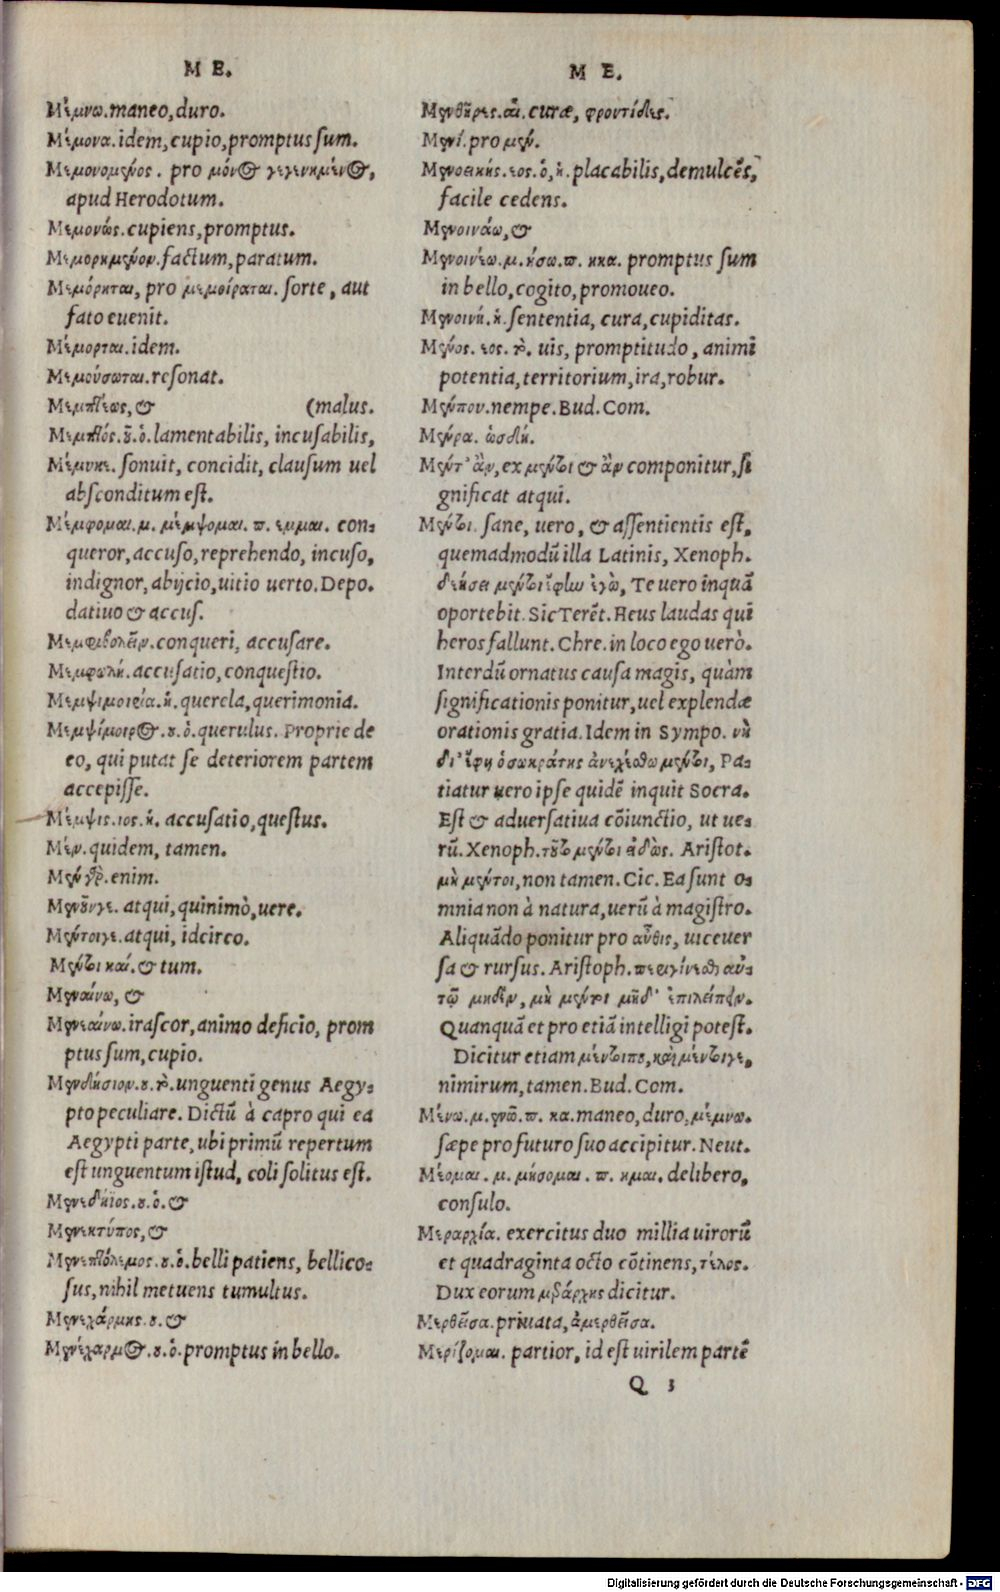 M E.
Μέμνω. maneo, duro.
Μέμονα. idem, cupio, promptus sum.
Μεμονομένος. pro μόνος γεγενημένος,
apud Herodotum.
Μεμονώς. cupiens, promptus.
Μεμορημένον. factum, paratum.
Μεμόρηται, pro μεμοίραται. sorte, aut
fato euenit.
Μέμορται. idem.
Μεμούσωται. resonat.
Μεμπτέως, & (malus.
Μεμπτός. ου. ὁ. lamentabilis, incusabilis,
Μέμυκε. sonuit, concidit, clausum uel
absconditum est.
Μέμφομαι. μ. μέμψομαι. π. εμμαι. con-
queror, accuso, reprehendo, incuso,
indignor, abijcio, uitio uerto. Depo.
datiuo & accus.
Μεμφιβολεῖν. conqueri, accusare.
Μεμφωλή. accusatio, conquestio.
Μεμψιμοιρία. ἡ. querela, querimonia.
Μεμψίμοιρος. ου. ὁ. querulus. Proprie de
eo, qui putat se deteriorem partem
accepisse.
Μέμψις. ιος. ἡ. accusatio, questus.
Μέν. quidem, tamen.
Μέν γὰρ. enim.
Μενοῦνγε. atqui, quinimò, uere.
Μέντοιγε. atqui, idcirco.
Μέντοι καί. & tum.
Μεναίνω, &
Μενεαίνω. irascor, animo deficio, prom
ptus sum, cupio.
Μενδήσιον. ου. τὸ. unguenti genus Aegy-
pto peculiare. Dictũ à capro qui ea
Aegypti parte, ubi primũ repertum
est unguentum istud, coli solitus est.
Μενεδήϊος. ου. ὁ. &
Μενεκτύπος, &
Μενεπτόλεμος. ου. ὁ. belli patiens, bellico-
sus, nihil metuens tumultus.
Μενεχάρμης. ου. &
Μενέχαρμος. ου. ὁ. promptus in bello.
M E.
Μενθῆρες. αἱ. curæ, φροντίδες.
Μενί. pro μέν.
Μενοεικής. εος. ὁ, ἡ. placabilis, demulcẽs,
facile cedens.
Μενοινάω, &
Μενοινέω. μ. ήσω. π. ηκα. promptus sum
in bello, cogito, promoueo.
Μενοινή. ἡ. sententia, cura, cupiditas.
Μένος. εος. τὸ. uis, promptitudo, animi
potentia, territorium, ira, robur.
Μένπου. nempe. Bud. Com.
Μένρα. ὡσδή.
Μέντ' ἂν, ex μέντοι & ἂν componitur, si
gnificat atqui.
Μέντοι. sane, uero, & assentientis est,
quemadmodũ illa Latinis, Xenoph.
δεήσει μέντοι ἔφην ἐγὼ, Te uero inquã
oportebit. Sic Terẽt. Heus laudas qui
heros fallunt. Chre. in loco ego uerò.
Interdũ ornatus causa magis, quàm
significationis ponitur, uel explendæ
orationis gratia. Idem in Sympo. νὴ
δι' ἔφη ὁ σωκράτης ἀνεχέσθω μέντοι, Pa-
tiatur uero ipse quidẽ inquit Socra.
Est & aduersatiua cõiunctio, ut ue-
rũ. Xenoph. τοῦτο μέντοι εἰδὼς. Aristot.
μὴ μέντοι, non tamen. Cic. Ea sunt o-
mnia non à natura, uerũ à magistro.
Aliquãdo ponitur pro αὖθις, uiceuer
sa & rursus. Aristoph. περιγίνεσθ αὐ-
τῷ μηδὲν, μὴ μέντοι μηδ' ἐπιλείπειν.
Quanquã et pro etiã intelligi potest.
Dicitur etiam μέντοιπου, καὶ μέντοιγε,
nimirum, tamen. Bud. Com.
Μένω. μ. ενῶ. π. κα. maneo, duro, μέμνω.
sæpe pro futuro suo accipitur. Neut.
Μέομαι. μ. μήσομαι. π. ημαι. delibero,
consulo.
Μεραρχία. exercitus duo millia uirorũ
et quadraginta octo cõtinens, τέλος.
Dux eorum μεράρχης dicitur.
Μερθεῖσα. priuata, ἀμερθεῖσα.
Μερίζομαι. partior, id est uirilem partẽ
Q 3
Digitalisierung gefördert durch die Deutsche Forschungsgemeinschaft - DFG